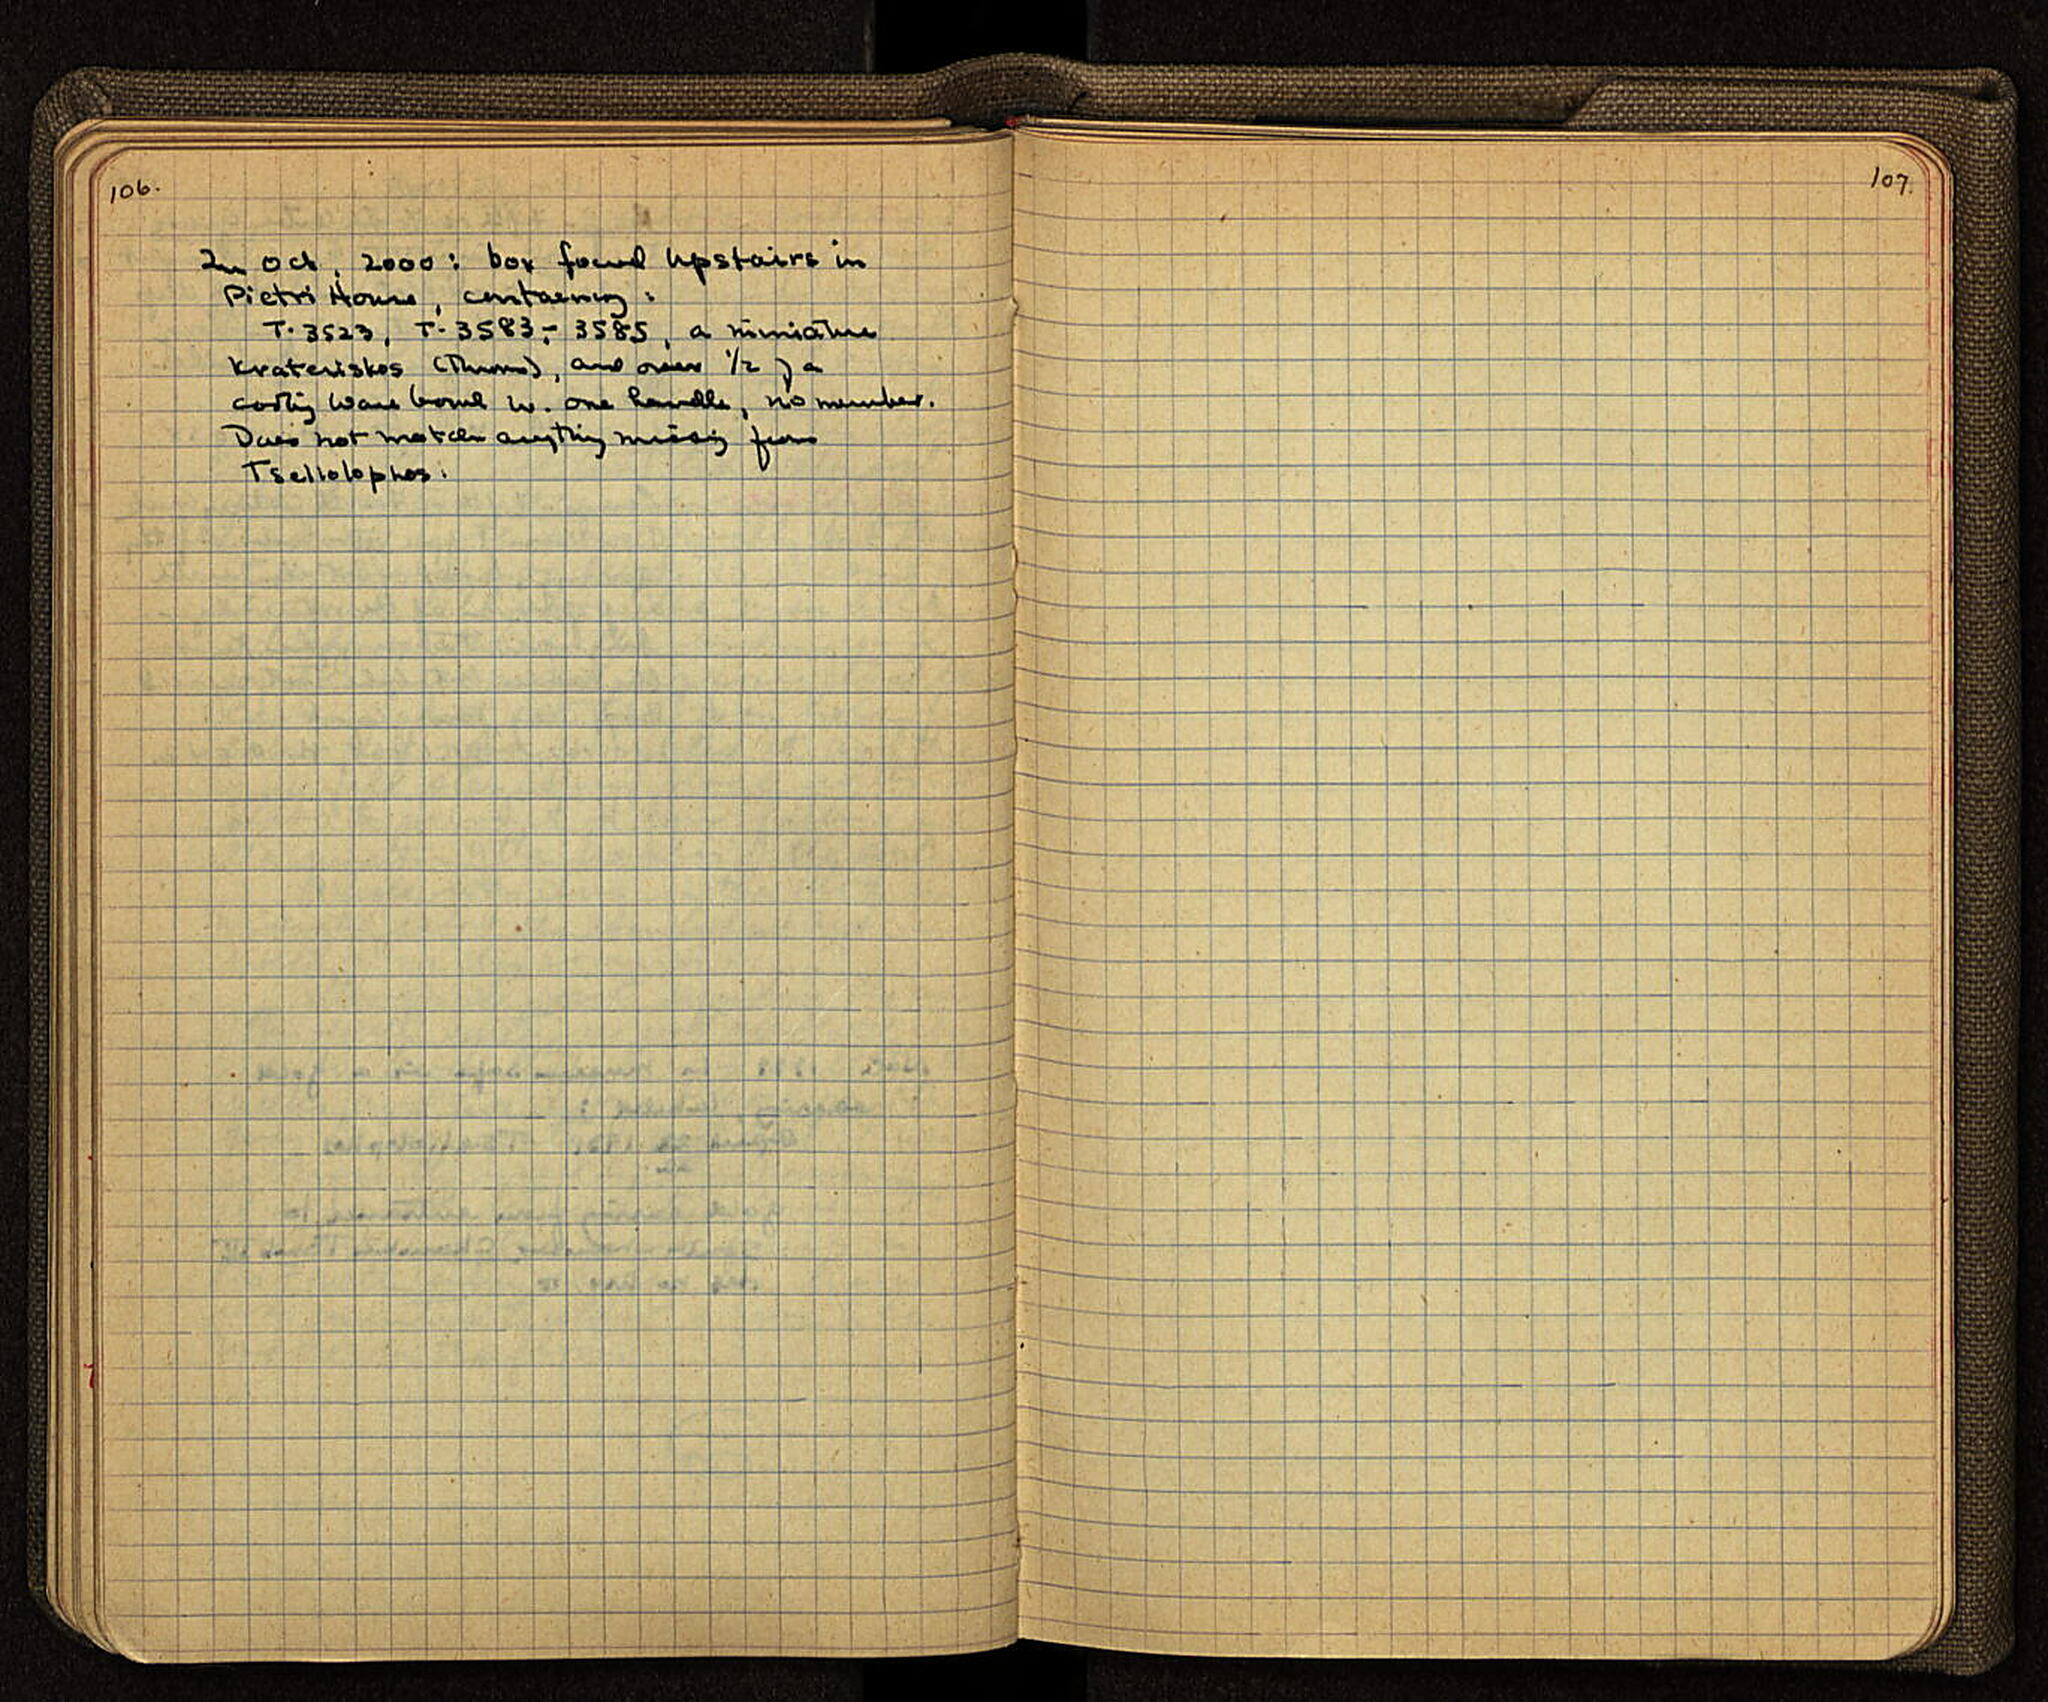 106.
In Oct. 2000: box found upstairs in
Pietri House, containing:
T-3523, T-3583 - 3585, a miniature
Krateriskos (Thrown), and over 1/2 of a
cooking ware bowl w. one handle, no number.
Does not match anything missing from
Tseliolophos.
107.